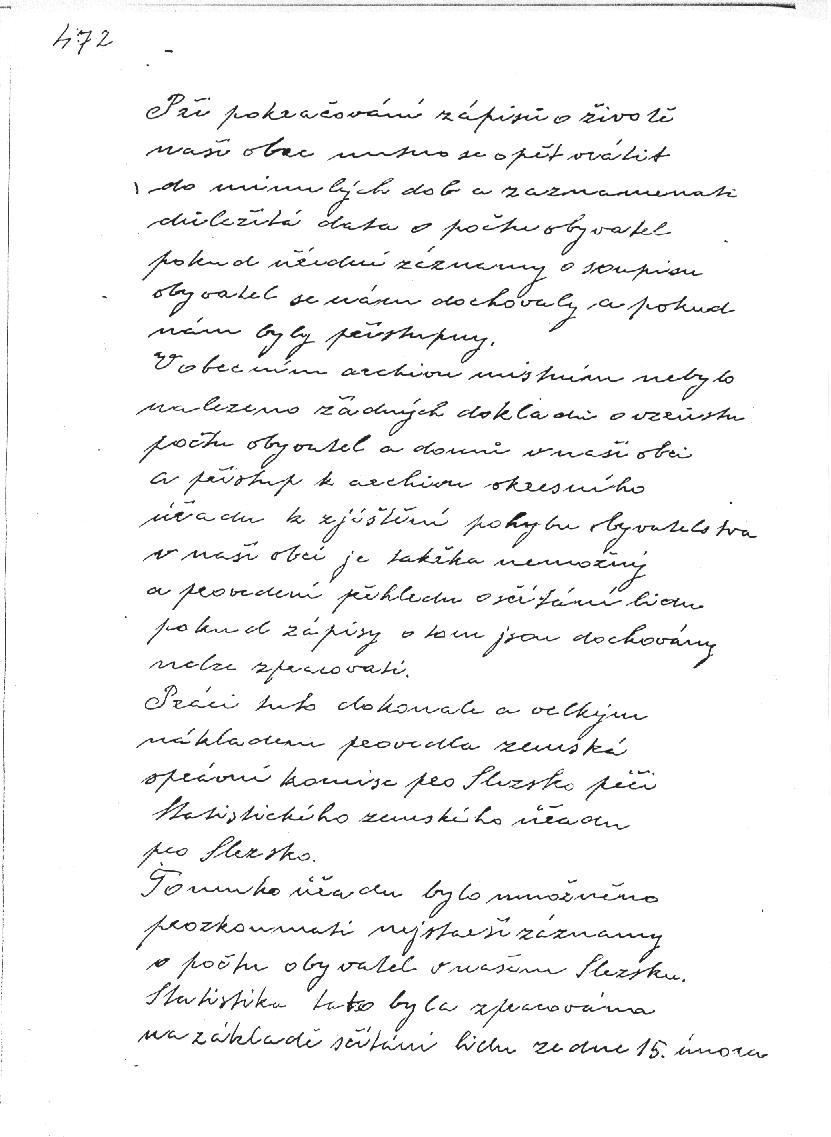 472
Při pokračování zápisů o životě
naší obce nutno se opět vrátit
do minulých dob a zaznamenati
důležitá data o počtu obyvatel
pokud úřední záznamy o soupisu
obyvatel se nám dochovaly a pokud
nám byly přístupny.
V obecním archivu místním nebylo
nalezeno žádných dokladů o vzrůstu
počtu obyvatel a domů v naší obci
a přístup k archivu okresního
úřadu k zjištění pohybu obyvatelstva
v naší obci je takřka nemožný
a provedení přehledu o sčítání lidu
pokud zápisy o tom jsou dochovány
nelze zpracovati.
Práci tuto dokonale a velkým
nákladem provedla zemská
správní komise pro Slezsko péčí
Statistického zemského úřadu
pro Slezsko.
Tomuto úřadu bylo umožněno
prozkoumati nejstarší záznamy
o počtu obyvatel v našem Slezsku.
Statistika tato byla zpracována
na základě sčítání lidu ze dne 15. února